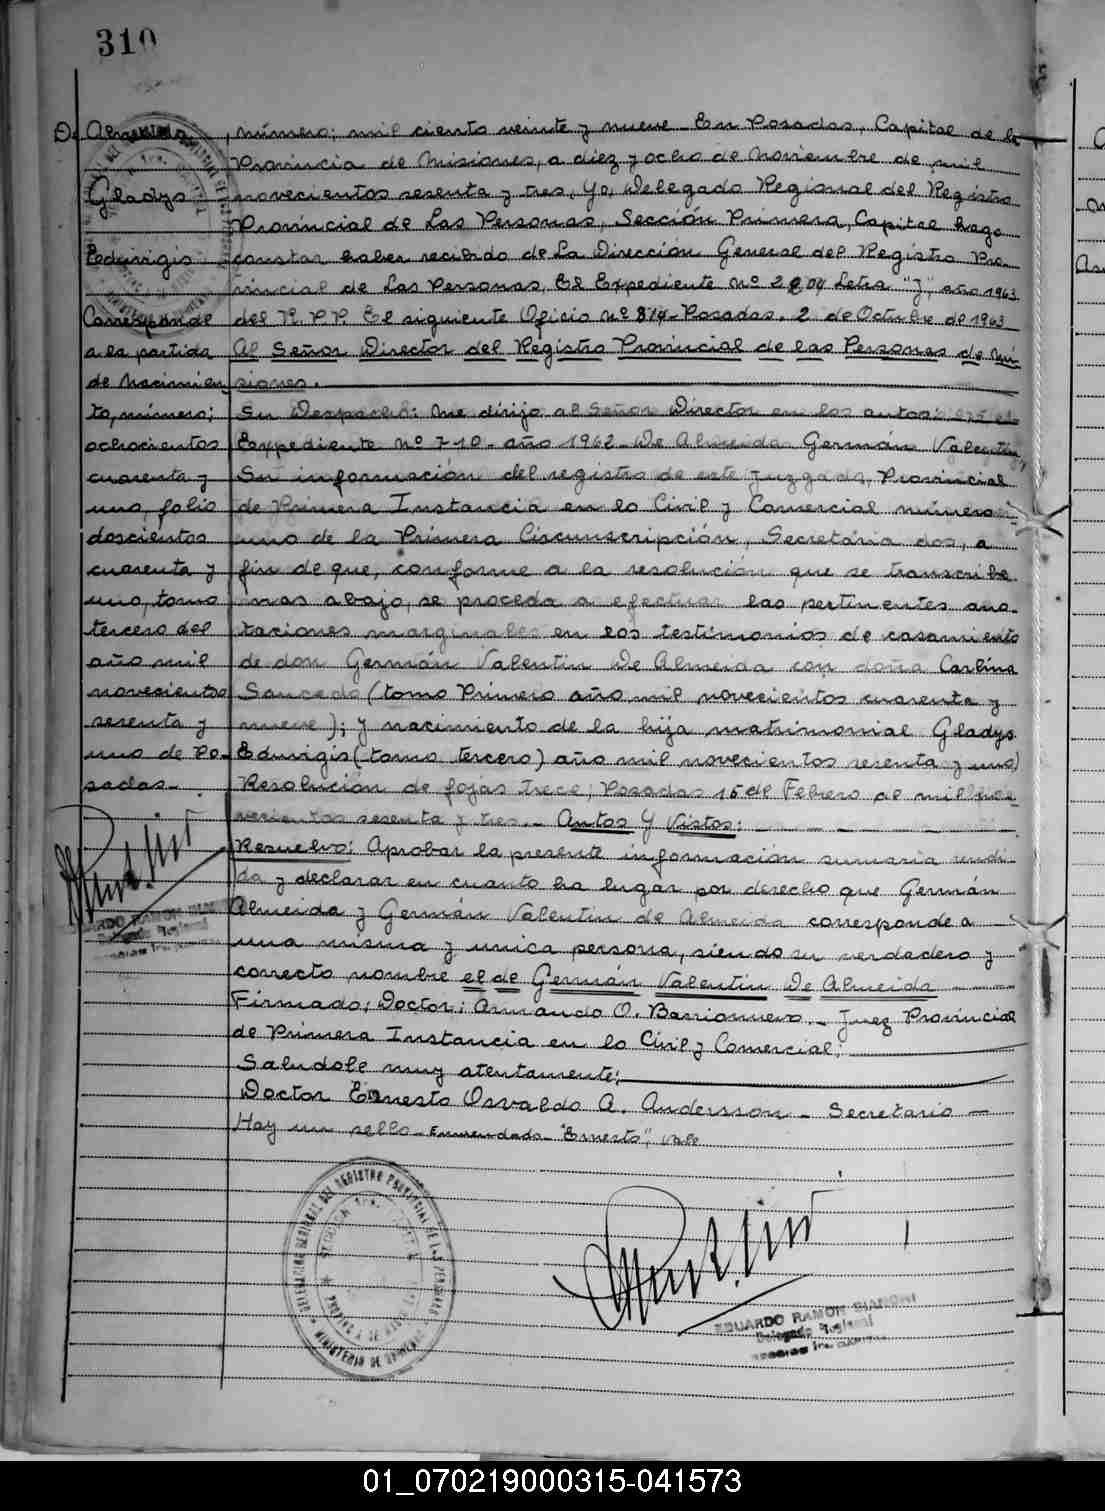 310
De Almeida
Gladys
Eduvigis
Corresponde
a la partida
de Nacimien
to, número;
ochocientos
cuarenta y
uno, folio
doscientos
cuarenta y
uno, tomo
tercero del
año mil
novecientos
sesenta y
uno de Po-
sadas.-
EDUARDO RAMON BIANCHI
Delegado Regional
número; mil ciento veinte y nueve - En Posadas, Capital de la
Provincia de Misiones, a diez y ocho de Noviembre de mil
novecientos sesenta y tres, Yo, Delegado Regional del Registro
Provincial de Las Personas, Sección Primera, Capital hago
constar haber recibido de La Dirección General del Registro Pro-
vincial de Las Personas, El Expediente Nº 2804 Letra "J", año 1963
del R.P.P. El siguiente Oficio Nº 814 - Posadas, 2 de Octubre de 1963
Al Señor Director del Registro Provincial de las Personas de Mi
siones.
Su Despacho: Me dirijo al Señor Director en los autos:
Expediente Nº 710 - año 1962 - De Almeida Germán Valentin,
Su información del registro de este Juzgado Provincial
de Primera Instancia en lo Civil y Comercial número
uno de la Primera Circunscripción, Secretaria dos, a
fin de que, conforme a la resolución que se transcribe
mas abajo, se proceda a efectuar las pertinentes ano-
taciones marginales en los testimonios de casamiento
de don Germán Valentin De Almeida con doña Carlina
Saucedo (tomo Primero año mil novecientos cuarenta y
nueve); y nacimiento de la hija matrimonial Gladys
Eduvigis (tomo tercero) año mil novecientos sesenta y uno)
Resolución de fojas trece; Posadas 15 de Febrero de mil nove
cientos sesenta y tres. - Autos Y Vistos:
Resuelvo: Aprobar la presente información sumaria rendi-
da y declarar en cuanto ha lugar por derecho que Germán
Almeida y Germán Valentin de Almeida corresponde a
una misma y unica persona, siendo su verdadero y
correcto nombre el de Germán Valentin De Almeida
Firmado; Doctor; Armando O. Barrionuevo. - Juez Provincial
de Primera Instancia en lo Civil y Comercial;
Saludole muy atentamente;
Doctor Ernesto Osvaldo A. Andersson - Secretario -
Hay un sello - Enmendado - "Ernesto", Vale
DELEGACION REGIONAL DEL REGISTRO PROVINCIAL DE LAS PERSONAS
EDUARDO RAMON BIANCHI
Delegado Regional
01_070219000315-041573